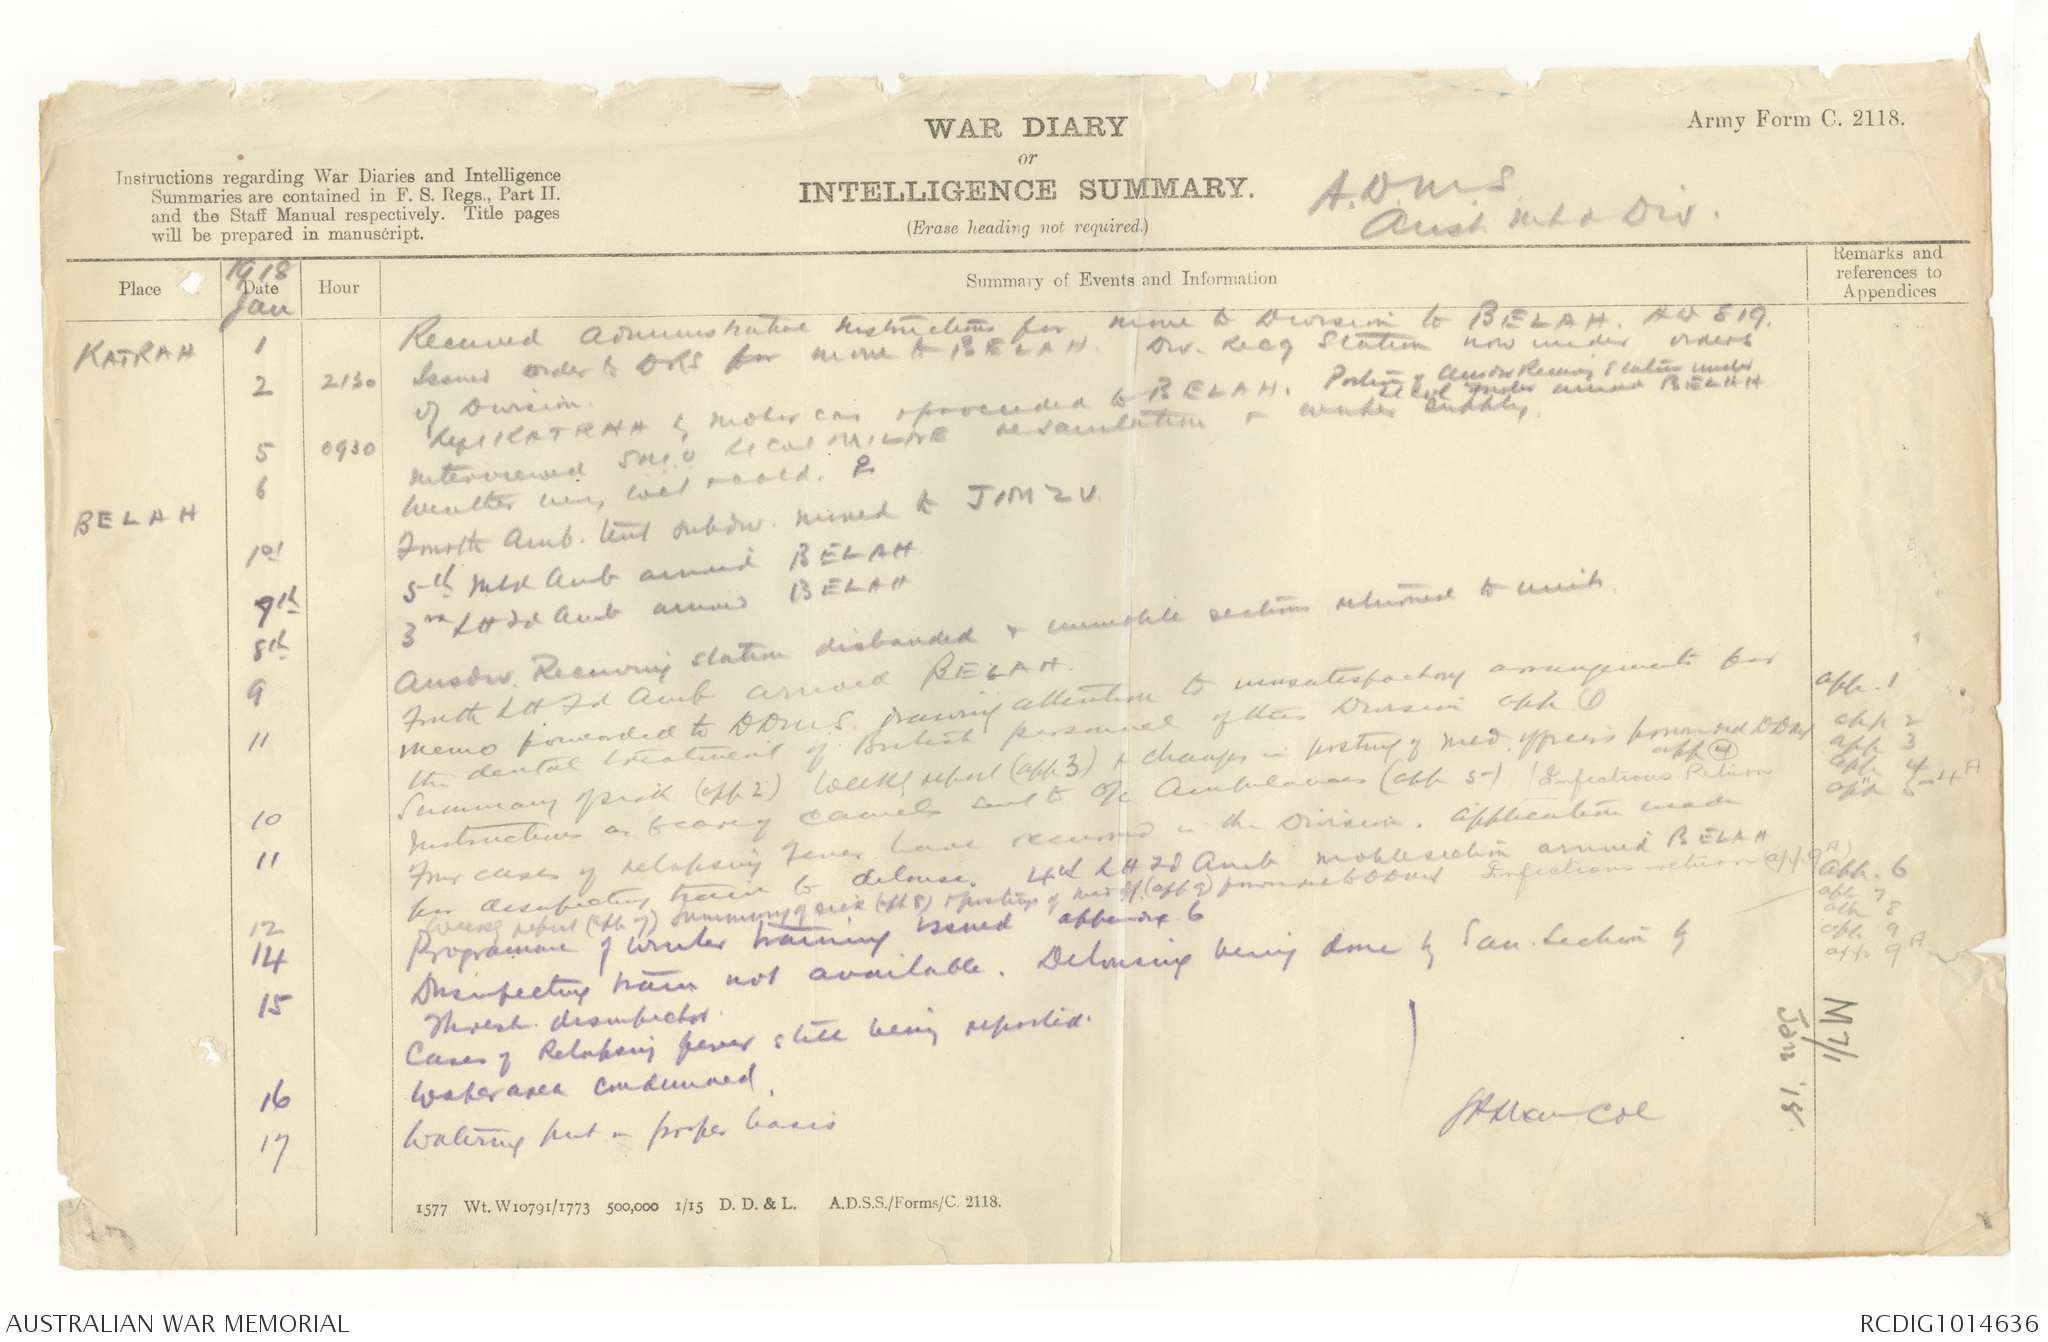 WAR DIARY
or
INTELLIGENCE SUMMARY.
(Erase heading not required.)
Army Form C. 2118.
Instructions regarding War Diaries and Intelligence
Summaries are contained in F. S. Regs., Part II.
and the Staff Manual respectively. Title pages
will be prepared in manuscript.
A.D.M.S.
Aust. Mtd Div.
Place
1918
Date
Jan
Hour
Summary of Events and Information
Remarks and
references to
Appendices
KATRAH 1 Received administrative instructions for move to Division to BELAH. AD 819.
2 2130 Issued order to DRS for move to BELAH. Div. Recg Station now under orders
of Division.
5 0930 Left KATRAH by motor car & proceeded to BELAH. Portion of Ausdiv Receiving Station under
arrived BELAH
6 Interviewed S.M.O. Lt Col MILNE re sanitation & water supply.
BELAH Weather very wet & cold.
Fourth Amb. tent subdiv. moved to
7th 5th Mtd Amb arrived BELAH
8th 3rd LH Fd Amb arrived BELAH
9 Ausdiv. Receiving station disbanded & immobile sections returned to units.
Fourth LH Fd Amb arrived BELAH.
11 Memo forwarded to DDMS. drawing attention to unsatisfactory arrangements for app. 1
the dental treatment of British personnel of this Division app 1
Summary of sick (app 2) weekly report (app 3) & changes in posting of med. officers forwarded DDMS app 2
app 4 app 3
10 Instructions as to care of camels sent to O/C Ambulances (app 5) Infectious Return app 4
app 5 4A
11 Four cases of relapsing fever have occurred in the Division. Application made
for disinfecting train to delouse. 4th LH Fd Amb mobile section arrived BELAH
12 Weekly report (app 7) Summary of sick (app 8) & postings of med of. (app 9) forwarded to DDMS Infectious return (app. 9A) app. 6
14 Programme of winter training issued appendix 6 app 7
app 8
15 Disinfecting train not available. Delousing being done by San. Section by app 9
Thresh. disinfector. app 9A
Cases of Relapsing fever still being reported.
16 Water area condemned.
17 Watering put on proper basis
Col
M7/1
Jan '18.
1577 Wt. W10791/1773 500,000 1/15 D. D. & L. A.D.S.S./Forms/C. 2118.
AUSTRALIAN WAR MEMORIAL
RCDIG1014636